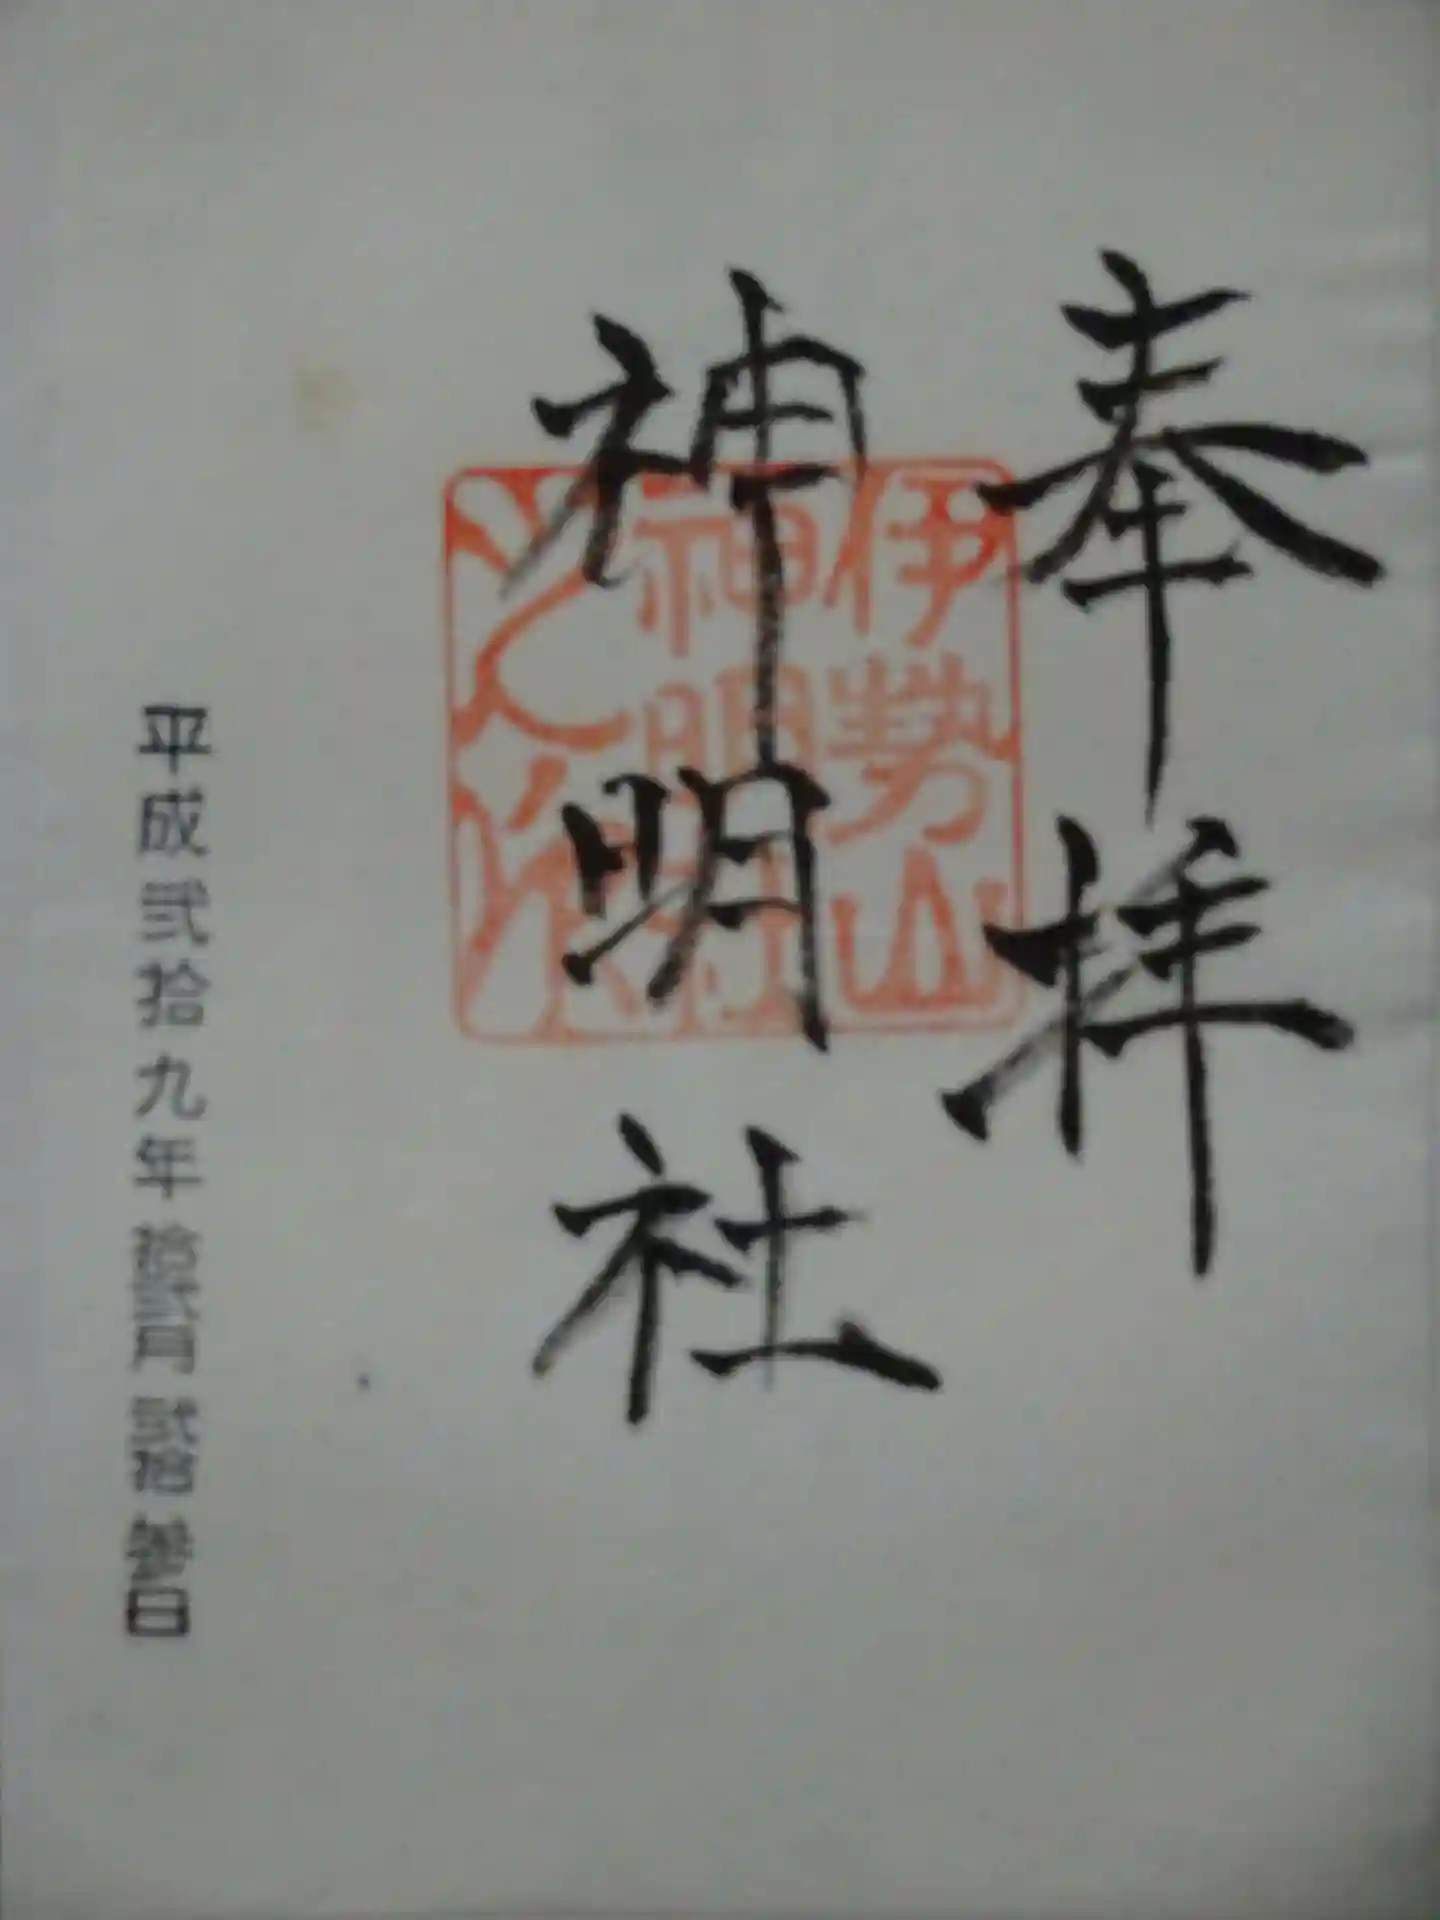 奉拝
神明社
伊勢山
神明社
之印
平成弐拾九年拾弐月弐拾参日